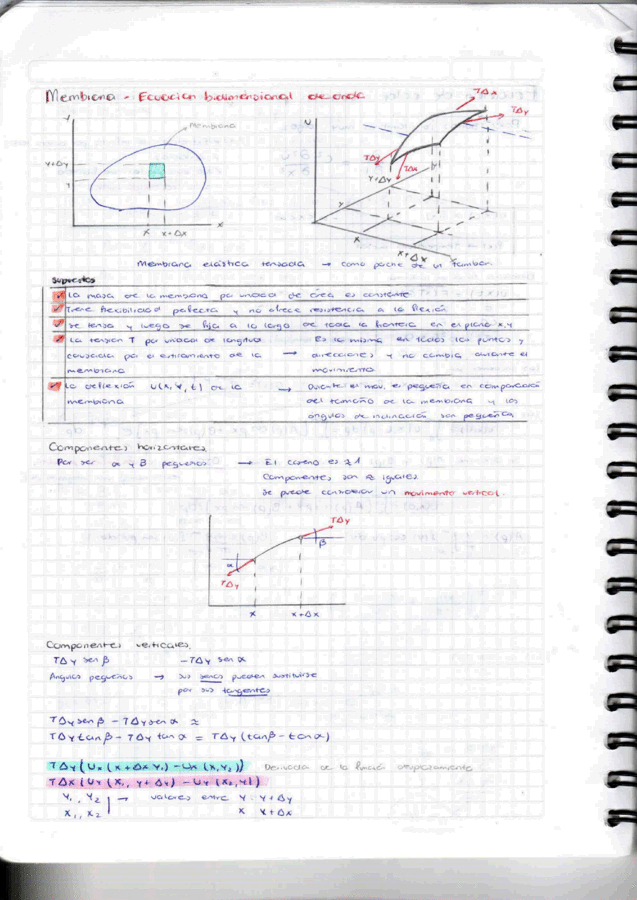 Membrana - Ecuación bidimensional de onda
Y
Membrana
Y+ΔY
Y
X X+ΔX X
U
TΔx
TΔy
TΔy
TΔx
Y+ΔY
Y
Y
X
X+ΔX
Membrana elástica tensada → como parche de un tambor.
Supuestos
La masa de la membrana por unidad de área es constante
Tiene flexibilidad perfecta y no ofrece resistencia a la flexión
Se tensa y luego se fija a lo largo de toda la frontera en el plano x,y
La tensión T por unidad de longitud Es la misma en todos los puntos y
causada por el estiramiento de la → direcciones y no cambia durante el
membrana movimiento
La deflexión U(x, Y, t) de la → Durante el mov. es pequeña en comparación
membrana del tamaño de la membrana y los
ángulos de inclinación son pequeños
Componentes horizontales
Por ser α y β pequeños → El coseno es ≈ 1
Componentes son ≈ iguales
Se puede considerar un movimiento vertical.
TΔy
β
α
TΔy
X X+ΔX
Componentes verticales.
TΔy sen β -TΔy sen α
Ángulos pequeños → sus senos pueden sustituirse
por sus tangentes
TΔy sen β - TΔy sen α ≈
TΔy tan β - TΔy tan α = TΔy (tan β - tan α)
TΔy (Ux (x+Δx Y1) - Ux (x, Y2)) Derivada de la función desplazamiento
TΔx (Uy (X1, y+Δy) - Uy (X2, y))
Y1, Y2 → valores entre Y Y+ΔY
X1, X2 X X+ΔX